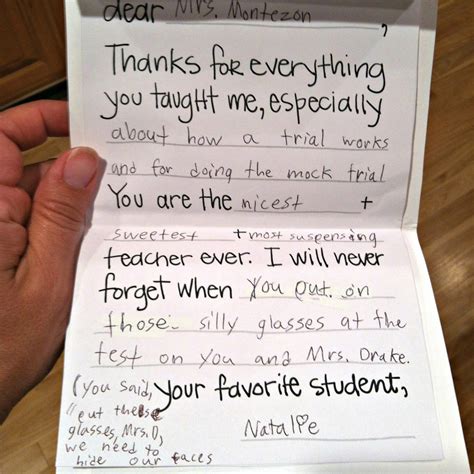 dear Mrs. Montezon,
Thanks for everything
you taught me, especially
about how a trial works
and for doing the mock trial
You are the nicest +
sweetest + most suspensing
teacher ever. I will never
forget when you put on
those silly glasses at the
test on you and Mrs. Drake.
(You said, your favorite student,
"put these
glasses, Mrs. D,
we need to
hide our faces
Natalie